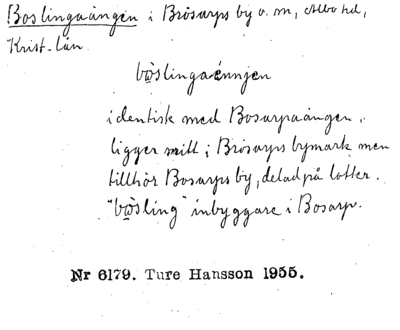 Boslingaången i Brösarps by o. sn, Albo hd,
Krist. län.
bo̱slingaénnjen
identisk med Bosarpaången,
ligger mitt i Brösarps bymark men
tillhör Bosarps by, delad på lotter.
"bo̱sling" inbyggare i Bosarp.
Nr 6179. Ture Hansson 1955.